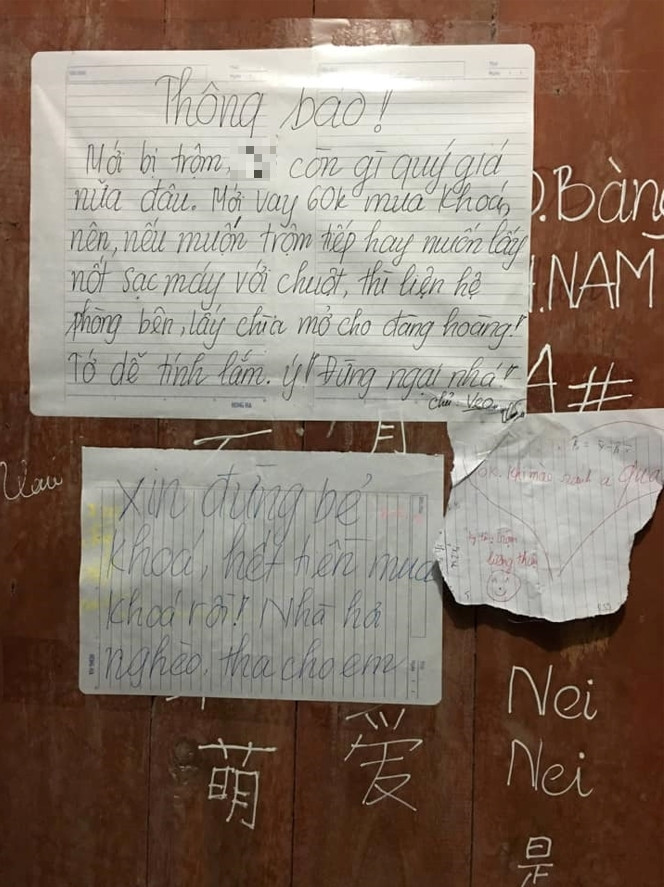 Thông báo!
Mới bị trộm, còn gì quý giá
nữa đâu. Mới vay 60k mua khoá,
nên, nếu muốn trộm tiếp hay muốn lấy
nốt sạc máy với chuột, thì liên hệ
phòng bên, lấy chìa mở cho đàng hoàng!
Tớ dễ tính lắm. ý! Đừng ngại nhá!
KONG HA
O.Bàng
H.NAM
A#
xin đừng bẻ
khoá, hết tiền mua
khoá rồi! Nhà hơi
nghèo. tha cho em
ok. khi nào rảnh a qua
lương thiện
萌
爱
Nei
Nei
是